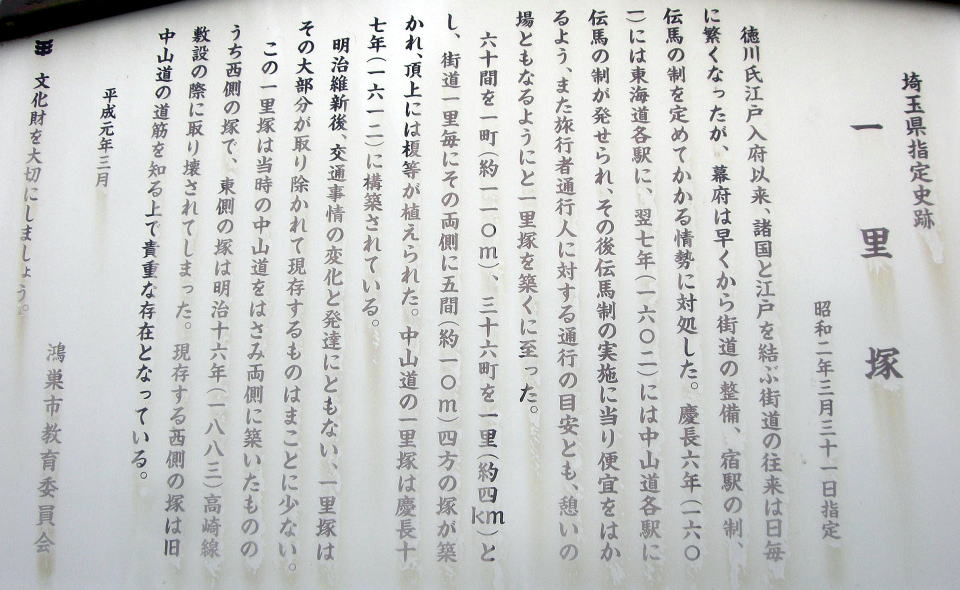 埼玉県指定史跡
一里塚
昭和二年三月三十一日指定
徳川氏江戸入府以来、諸国と江戸を結ぶ街道の往来は日毎
に繁くなったが、幕府は早くから街道の整備、宿駅の制、
伝馬の制を定めてかかる情勢に対処した。慶長六年(一六〇
一)には東海道各駅に、翌七年(一六〇二)には中山道各駅に
伝馬の制が発せられ、その後伝馬制の実施に当り便宜をはか
るよう、また旅行者通行人に対する通行の目安とも、憩いの
場ともなるようにと一里塚を築くに至った。
六十間を一町(約一一〇m)、三十六町を一里(約四km)と
し、街道一里毎にその両側に五間(約一〇m)四方の塚が築
かれ、頂上には榎等が植えられた。中山道の一里塚は慶長十
七年(一六一二)に構築されている。
明治維新後、交通事情の変化と発達にともない、一里塚は
その大部分が取り除かれて現存するものはまことに少ない。
この一里塚は当時の中山道をはさみ両側に築いたものの
うち西側の塚で、東側の塚は明治十六年(一八八三)高崎線
敷設の際に取り壊されてしまった。現存する西側の塚は旧
中山道の道筋を知る上で貴重な存在となっている。
平成元年三月
文化財を大切にしましょう。
鴻巣市教育委員会